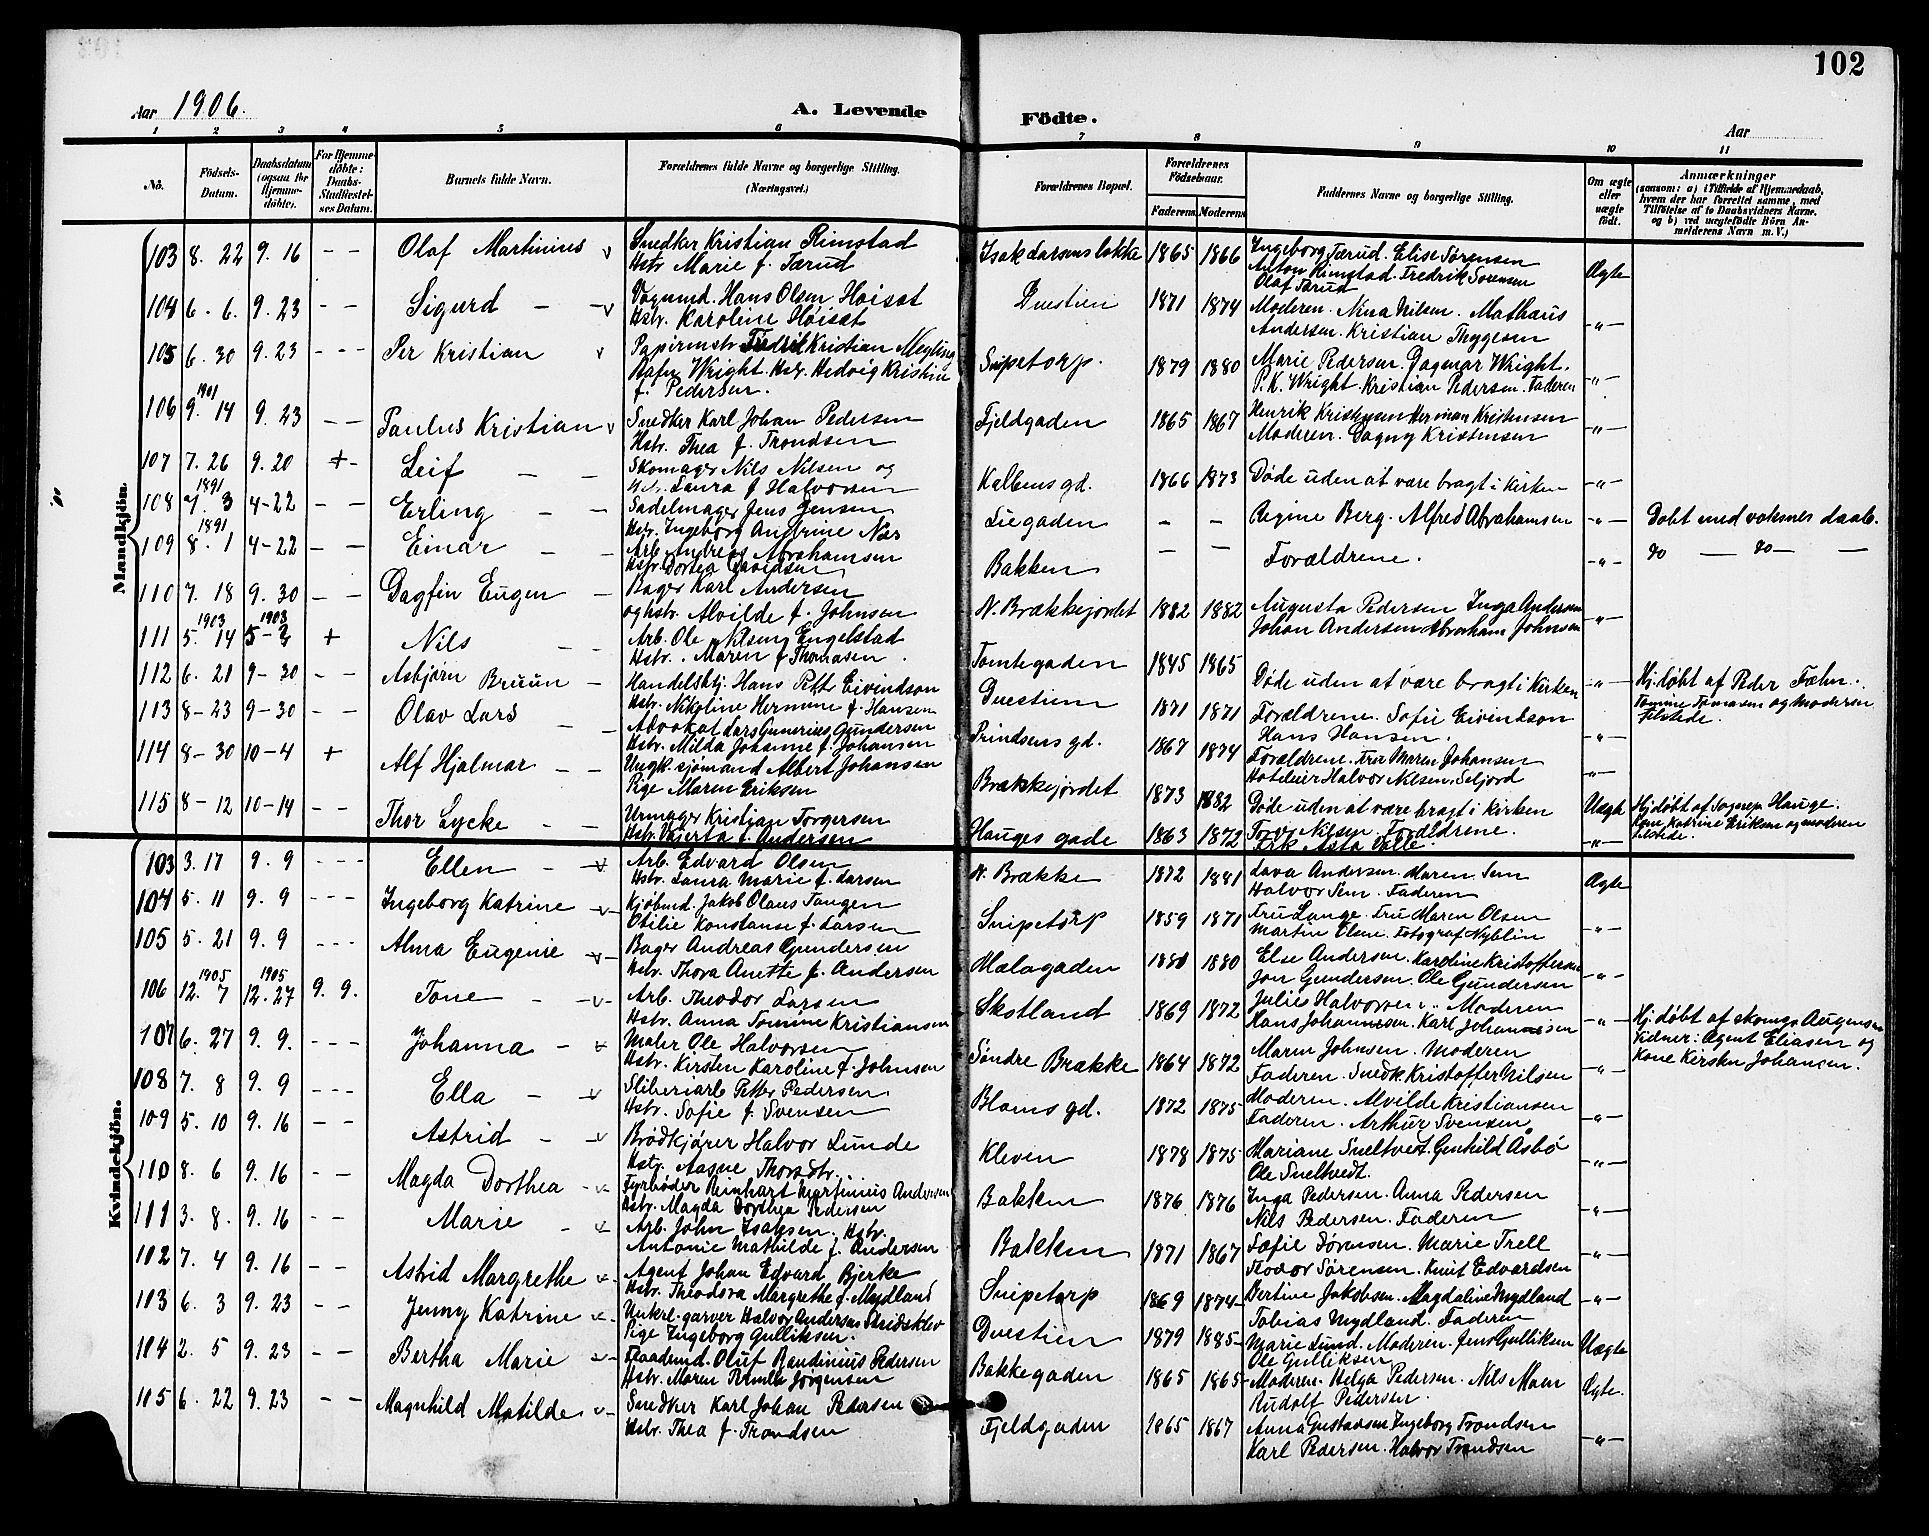 102
Aar 1906.
A. Levende Födte.
Aar
1 2 3 4 5 6 7 8 9 10 11
No.
Födsels-Datum.
Daabsdatum (ogsaa for Hjemme-döbte).
For Hjemme-döbte: Daabs-Stadfæstel-ses Datum.
Barnets fulde Navn.
Forældrenes fulde Navne og borgerlige Stilling. (Næringsvei.)
Forældrenes Bopæl.
Forældrenes Födselsaar.
Faderens Moderens
Faddernes Navne og borgerlige Stilling.
Om ægte eller uægte født.
Anmærkninger
(saasom: a) i Tilfælde af Hjemmedaab, hvem der har forrettet samme, med Tilføielse af to Daabsvidners Navne. og b) ved uægtefødte Börn An-melderens Navn m. V.)
Mandkjön.
103 8. 22 9. 16 - - Olaf Martinius v Snedker Kristian Rimstad Hstr Marie f. Tærud Isak larsens løkke 1865 1866 Ingeborg Tærud. Elise Sørensen Anton Rimstad Fredrik Sørensen Olaf Tærud Ægte
104 6. 6. 9. 23 - - Sigurd - v Vognmd. Hans Olsen Høisæt Hstr. Karoline Høisæt Duestien 1871 1874 Moderen. Nina Nilsen. Mathæus Andersen. Kristian Thygesen -"-
105 6. 30 9. 23 - - - Per Kristian v Papirmstr Fredrik Kristian Meyling Stafer Wright. Hstr. Hedvig Kristine f. Pedersen. Snipetorp. 1879 1880 Marie Pedersen. Dagmar Wright. P.K. Wright. Kristian Pedersen. Faderen -"-
106 1901 9. 14 9. 23 - - Paulus Kristian v Snedker Karl Johan Pedersen Hstr. Thea f. Trondsen Fjeldgaden 1865 1867 Henrik Kristensen Herman Kristensen Moderen. Dagny Kristensen -"-
107 7. 26 9. 20 + - Leif - - Skomager Nils Nilsen og Laura f Halvorsen Kalbensgd. 1866 1873 Døde uden at være bragt i Kirken -"-
108 1891 7. 3 4-22 - - Erling - - Sadelmager Jens Jensen Hstr. Ingeborg Andrine Næs Liegaden - - Regine Berg. Alfred Abrahamsen -"- Døbt med voksnes daab.
109 1891 8. 1 4-22 - - Einar - - Arb. Andreas Abrahamsen Hstr. Dortea Davidsen Bakken - - Forældrene. -"- do - do -
110 7. 18 9. 30 - - Dagfin Eugen - Bager Karl Andersen og hstr. Alvilde f. Johnsen N. Brækkejordet 1882 1882 Augusta Pedersen Inga Andersen Johan Andersen Abraham Johnsen -"-
111 1903 5. 14 1903 5-2 + Nils - - Arb. Ole Nilsen Engelstad Hstr. Maren f Thomasen. Tomtegaden 1845 1865 Døde uden at være bragt i Kirken -"- Hj.døbt af Peder Fæhn. Tomine Tomasen og moderen tilstede.
112 6. 21 9-30 - - Asbjørn Bruun - Handelsbtj. Hans Petter Eivindson Hstr. Nikoline Hermine f. Hansen Duestien 1871 1871 Forældrene. Sofie Eivindson Hans Hansen. -"-
113 8-23 9-30 - - Olav Lars - - Advokat Lars Gunerius Gundersen Hstr. Milda Johanne f. Johansen Prindsensgd. 1867 1874 Forældrene. Fru Maren Johansen Hoteleier Halvor Nilsen, Seljord -"-
114 8-30 10-4 + Alf Hjalmar - - Ungk. sjømand Albert Johansen Pige Maren Eriksen Brækkejordet 1873 1882 Døde uden at være bragt i kirken Uægte Hj.døbt af Sognep. Hauge. Kone Katrine Eriksen og moderen tilstede.
115 8-12 10-14 Thor Lycke - - Urmager Kristian Torgersen Hstr. f. Andersen Hauges gade 1863 1872 Torv. Nilsen. Forældrene. Frk Asta Valle. -"-
Kvindekjön.
103 3. 17 9. 9 - - - Ellen - v Arb. Edvard Olsen Hstr. Laura Marie f. Larsen N. Brække 1872 1881 Lava Andersen. Maren Sem Halvor Sem. Faderen Ægte
104 5. 11 9. 9 - - - Ingeborg Katrine v Kjøbmd. Jakob Olaus Tangen Otilie Konstanse f. Larsen Snipetorp 1859 1871 Fru Lange. Fru Maren Olsen Martin Olsen. Fotograf Nyblin -"-
105 5. 21 9. 9 - - - Alma Eugenie v Bager Andreas Gundersen Hstr. Thora Anette f. Andersen Melagaden 1880 1880 Else Andersen. Karoline Kristoffersen Jon Gundersen. Ole Gundersen -"-
106 1905 12. 7 1905 12. 27 9. 9. Tone - v Arb. Theodor Larsen Hstr. Anna Tomine Kristiansen Skotland 1869 1872 Julie Halvorsen. Moderen Hans Johannesen. Karl Johannessen -"- Hj.døbt af skomgr Augensen Vidner: Agent Eliasen og Kone Kirsten Johansen.
107 6. 27 9. 9. - - - Johanna - v Maler Ole Halvorsen Hstr. Kirsten Karoline f. Johnsen Søndre Brække 1864 1872 Maren Johnsen. Moderen Faderen. Snedk Kristoffer Nilsen -"-
108 7. 8 9. 9 - - - Ella - v Sliberiarb Petter Pedersen Hstr. Sofie f. Svensen Blomsgd. 1872 1875 Moderen. Alvilde Kristiansen Faderen. Arthur Svensen -"-
109 5. 10 9. 16 - - Astrid - v Brødkjører Halvor Lunde Hstr. Aasne Thorsdtr. Kleven 1878 1875 Mariane Sneltvedt. Gunhild Aasbø Ole Sneltvedt. -"-
110 8. 6 9. 16 - - Magda Dorthea - v Fyrbøder Reinhart Martinius Andersen Hstr. Magda Dorthea Pedersen Bakken 1876 1876 Inga Pedersen. Anna Pedersen Nils Pedersen. Faderen -"-
111 3. 8. 9. 16 - - Marie - v Arb. John Isaksen. Hstr. Antonie Mathilde f. Andersen Bakken 1871 1867 Sofie Sørensen. Marie Trell Teodor Sørensen. Knut Edvardsen -"-
102 7. 4 9. 16 - - Astrid Margrethe v Agent Johan Edvard Bjerke Hstr. Theodora Margrethe f. Mydland Snipetorp 1869 1874 Bertine Jakobsen. Magdaline Mydland Tobias Mydland. Faderen -"-
103 6. 3 9. 23 - - Jenny Katrine v Unkrl. garver Halvor Andersen Skridsklev Pige Ingeborg Gulliksen. Duestien 1879 1885 Marie Lund. Moderen. Jens Gulliksen Ole Gulliksen Uægte
104 2. 5 9. 23 - - Bertha Marie v Flaademd. Oluf Randinius Pedersen Hstr. Maren Jørgensen Bakkegaden 1865 1865 Moderen. Helga Pedersen. Nils Moen Rudolf Pedersen. Ægte.
105 6. 22 9. 23 - - Magnhild Matilde v Snedker Karl Johan Pedersen Hstr. Thea f. Trondsen Fjeldgaden 1865 1867 Anna Gustavsen Ingeborg Trondsen Karl Pedersen. Halvor Trondsen -"-